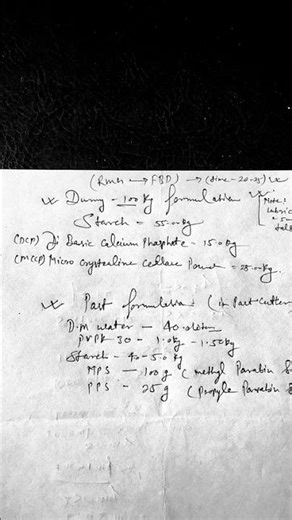 (RMH → FBD) → (time - 20-25)
Dumy - 100 Kg formulation
[Note!
Starch = 55.00 Kg
(DCP) Di Basic Calcium Phasphate = 15.0 Kg
(MCCP) Micro crystaline Cellose Pound = 28.00 Kg.
Past formulation: (in Past Cutter
D.M water — 40.0 liter
PVPK 30 - 1.0 Kg - 1.50 Kg
Starch - 4.0 - 5.0 Kg
MPS — 100 g (methyl Parabin S
PPS - 25 g (Propyle Parabin S